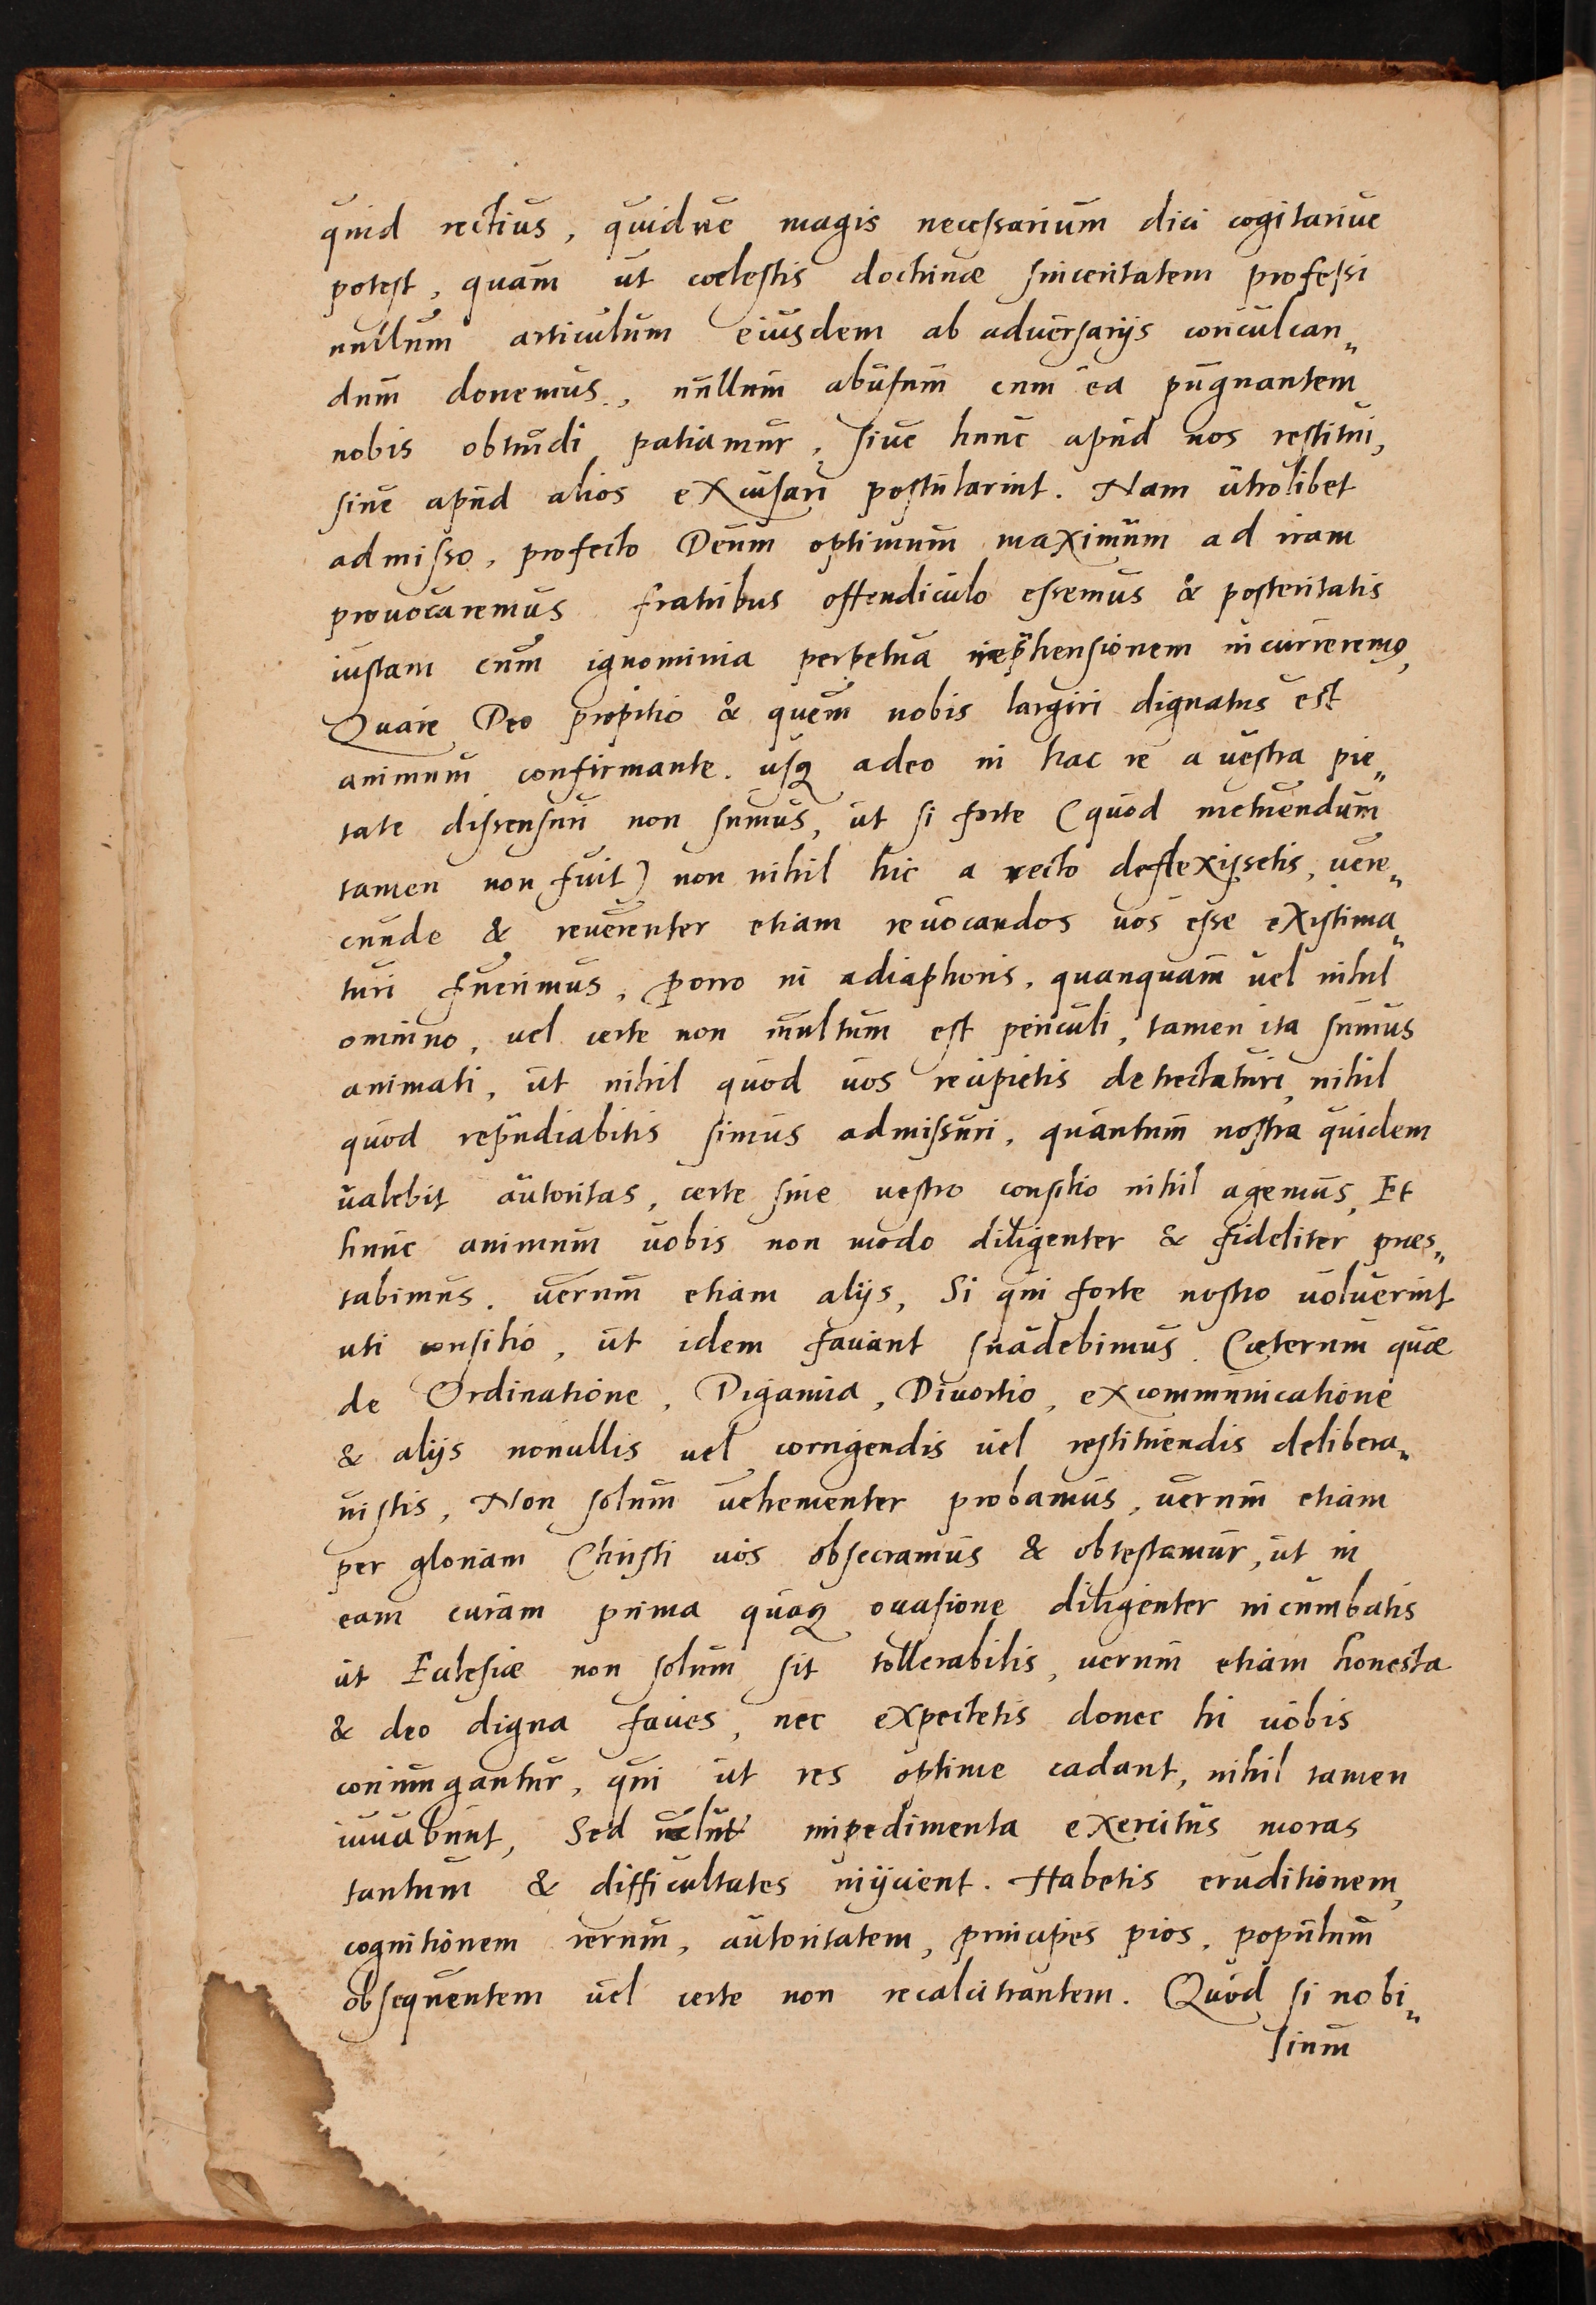 quid rectius, quidue magis necessarium dici cogitariue
potest, quam ut coelestis doctrinæ sinceritatem professi
nullum articulum eiusdem ab aduersarijs conculcan„
dum donemus, nullum abusum cum ea pugnantem
nobis obtrudi patiamur, siue hunc apud nos restitui,
siue apud alios excusari postularint. Nam utrolibet
admisso, profecto Deum optimum maximum ad iram
prouocaremus fratribus offendiculo essemus & posteritatis
iustam cum ignominia perpetua reprehensionem incurreremus,
Quare Deo propitio & quem nobis largiri dignatus est
animum confirmante, usq adeo in hac re a uestra pie„
tate dissensuri non sumus, ut si forte (quod metuendum
tamen non fuit) non nihil hic a recto deflexissetis, uere„
cunde & reuerenter etiam reuocandos uos esse existima„
turi fuerimus, porro in adiaphoris, quanquam uel nihil
omnino, uel certe non multum est periculi, tamen ita sumus
animati, ut nihil quod uos recipietis detrectaturi, nihil
quod repudiabitis simus admissuri, quantum nostra quidem
ualebit autoritas, certe sine uestro consilio nihil agemus, Et
hunc animum uobis non modo diligenter & fideliter præs„
tabimus, uerum etiam alijs, Si qui forte nostro uoluerint
uti consilio, ut idem faciant suadebimus. Cæterum quæ
de Ordinatione, Digamia, Diuortio, excommunicatione
& alijs nonullis uel corrigendis uel restituendis delibera„
uistis, Non solum uehementer probamus, uerum etiam
per gloriam Christi uos obsecramus & obtestamur, ut in
eam curam prima quaq occasione diligenter incumbatis
ut Eclesiæ non solum sit tollerabilis, uerum etiam honesta
& deo digna facies, nec expectetis donec hi uobis
coniungantur, qui ut res optime cadant, nihil tamen
iuuabunt, Sed uelut impedimenta exercitus moras
tantum & difficultates inijcient. Habetis eruditionem,
cognitionem rerum, autoritatem, principes pios, populum
obsequentem uel certe non recalcitrantem. Quod si nobi„
sium